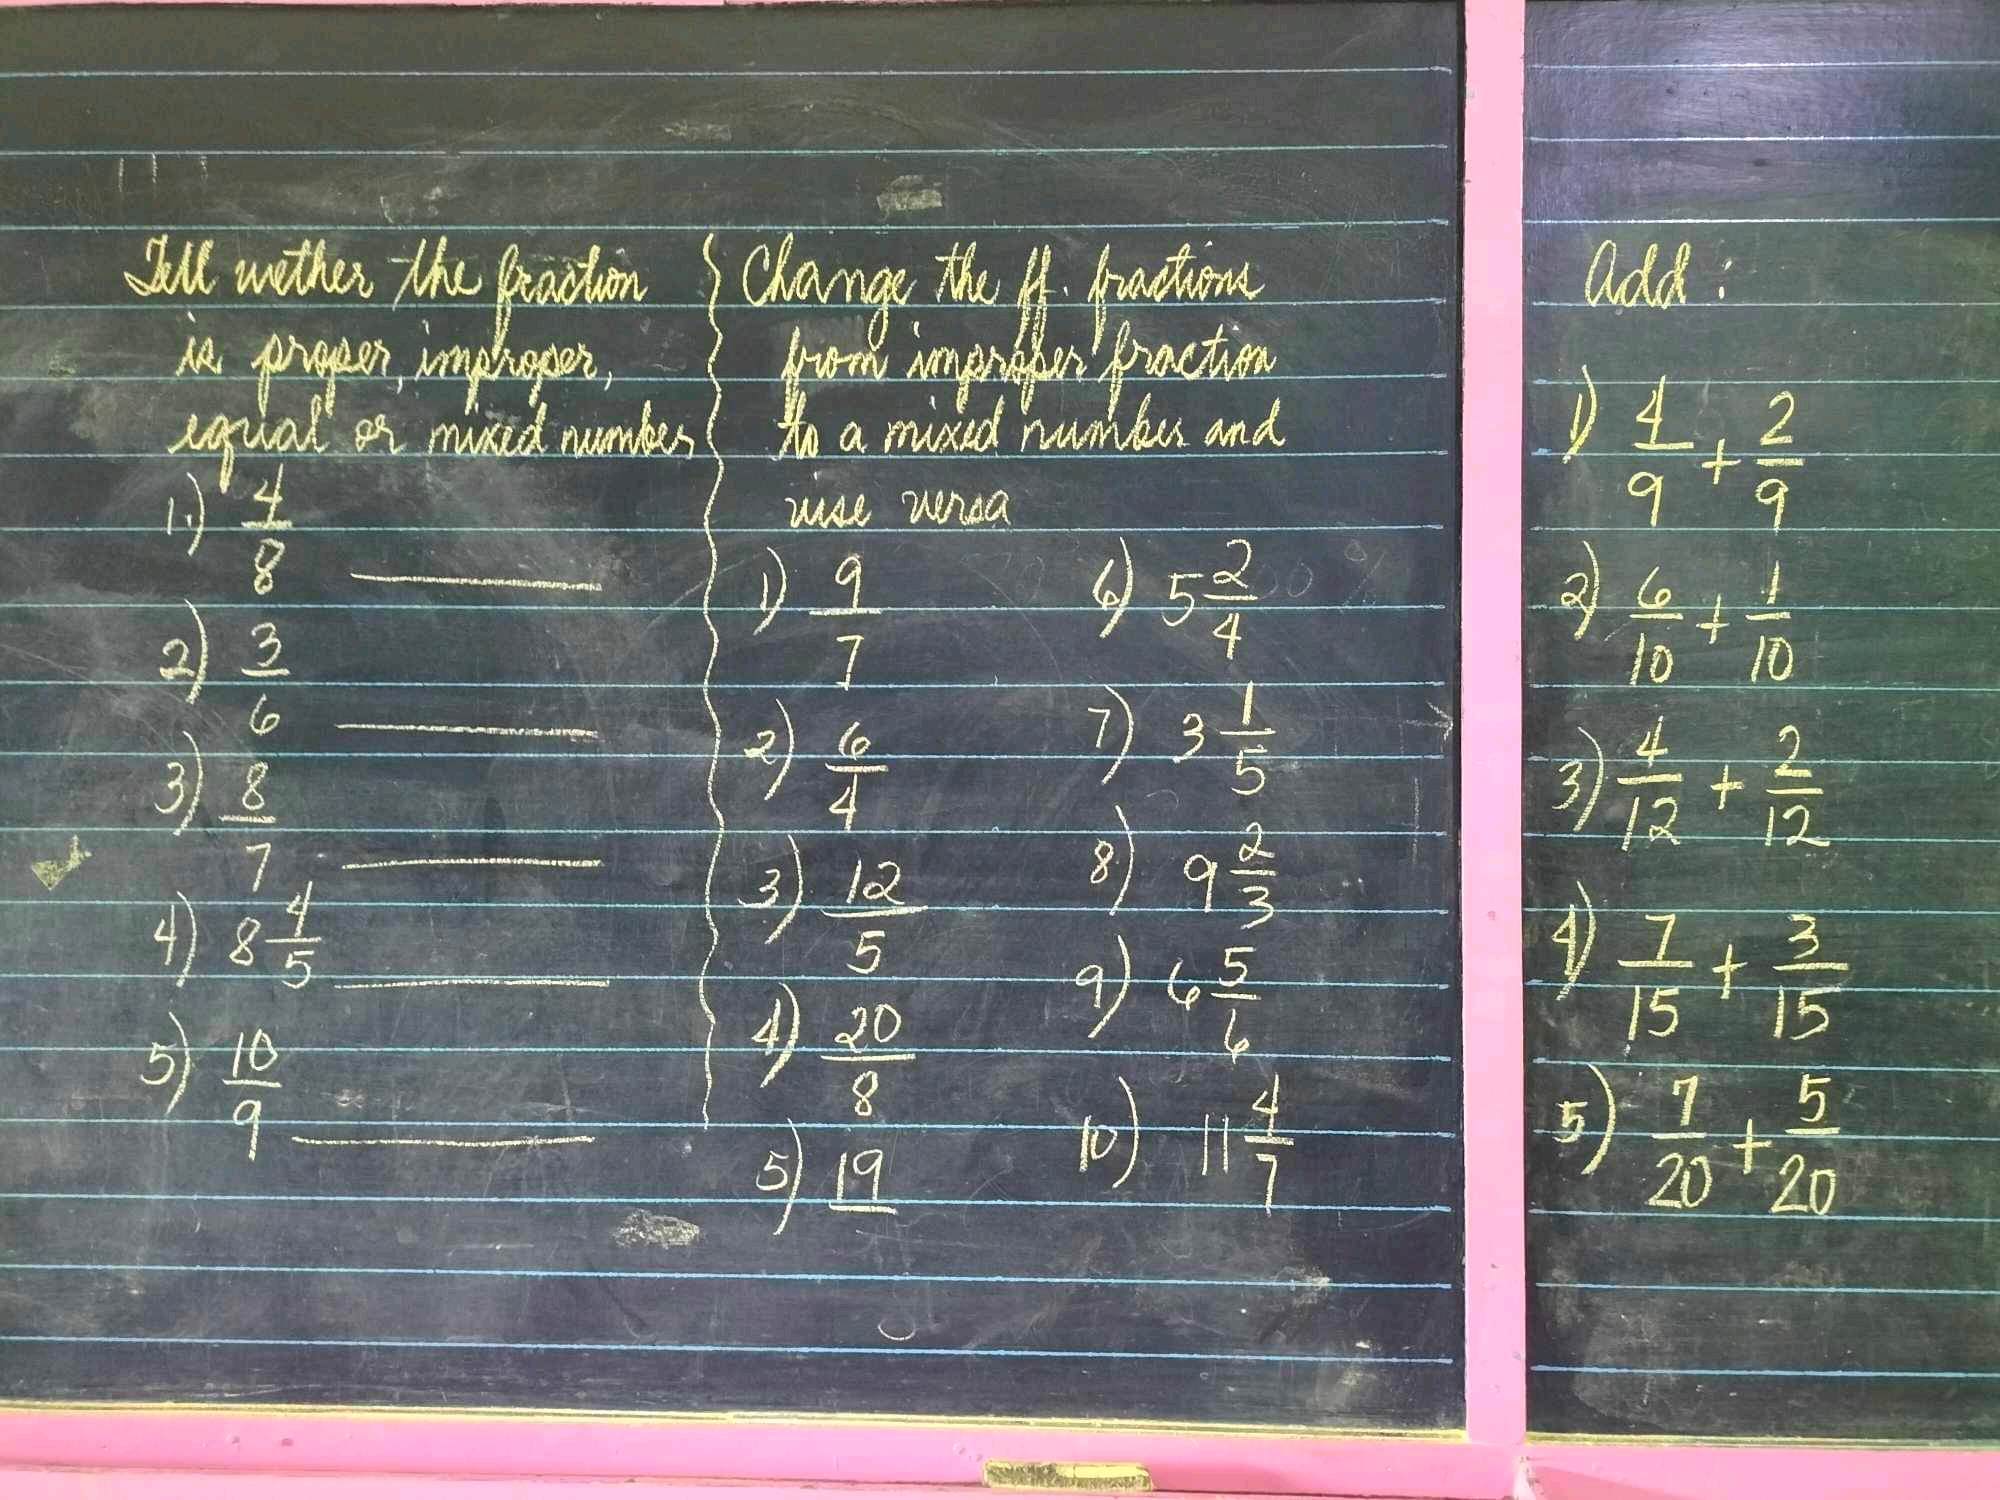 Tell wether the fraction
is proper, improper,
equal or mixed number
1.) 4/8
2) 3/6
3) 8/7
4) 8 4/5
5) 10/9
Change the ff. fractions
from improper fraction
to a mixed number and
vise versa
1) 9/7
2) 6/4
3) 12/5
4) 20/8
5) 19/
6) 5 2/4
7) 3 1/5
8) 9 2/3
9) 6 5/6
10) 11 4/7
Add :
1) 4/9 + 2/9
2) 6/10 + 1/10
3) 4/12 + 2/12
4) 7/15 + 3/15
5) 7/20 + 5/20